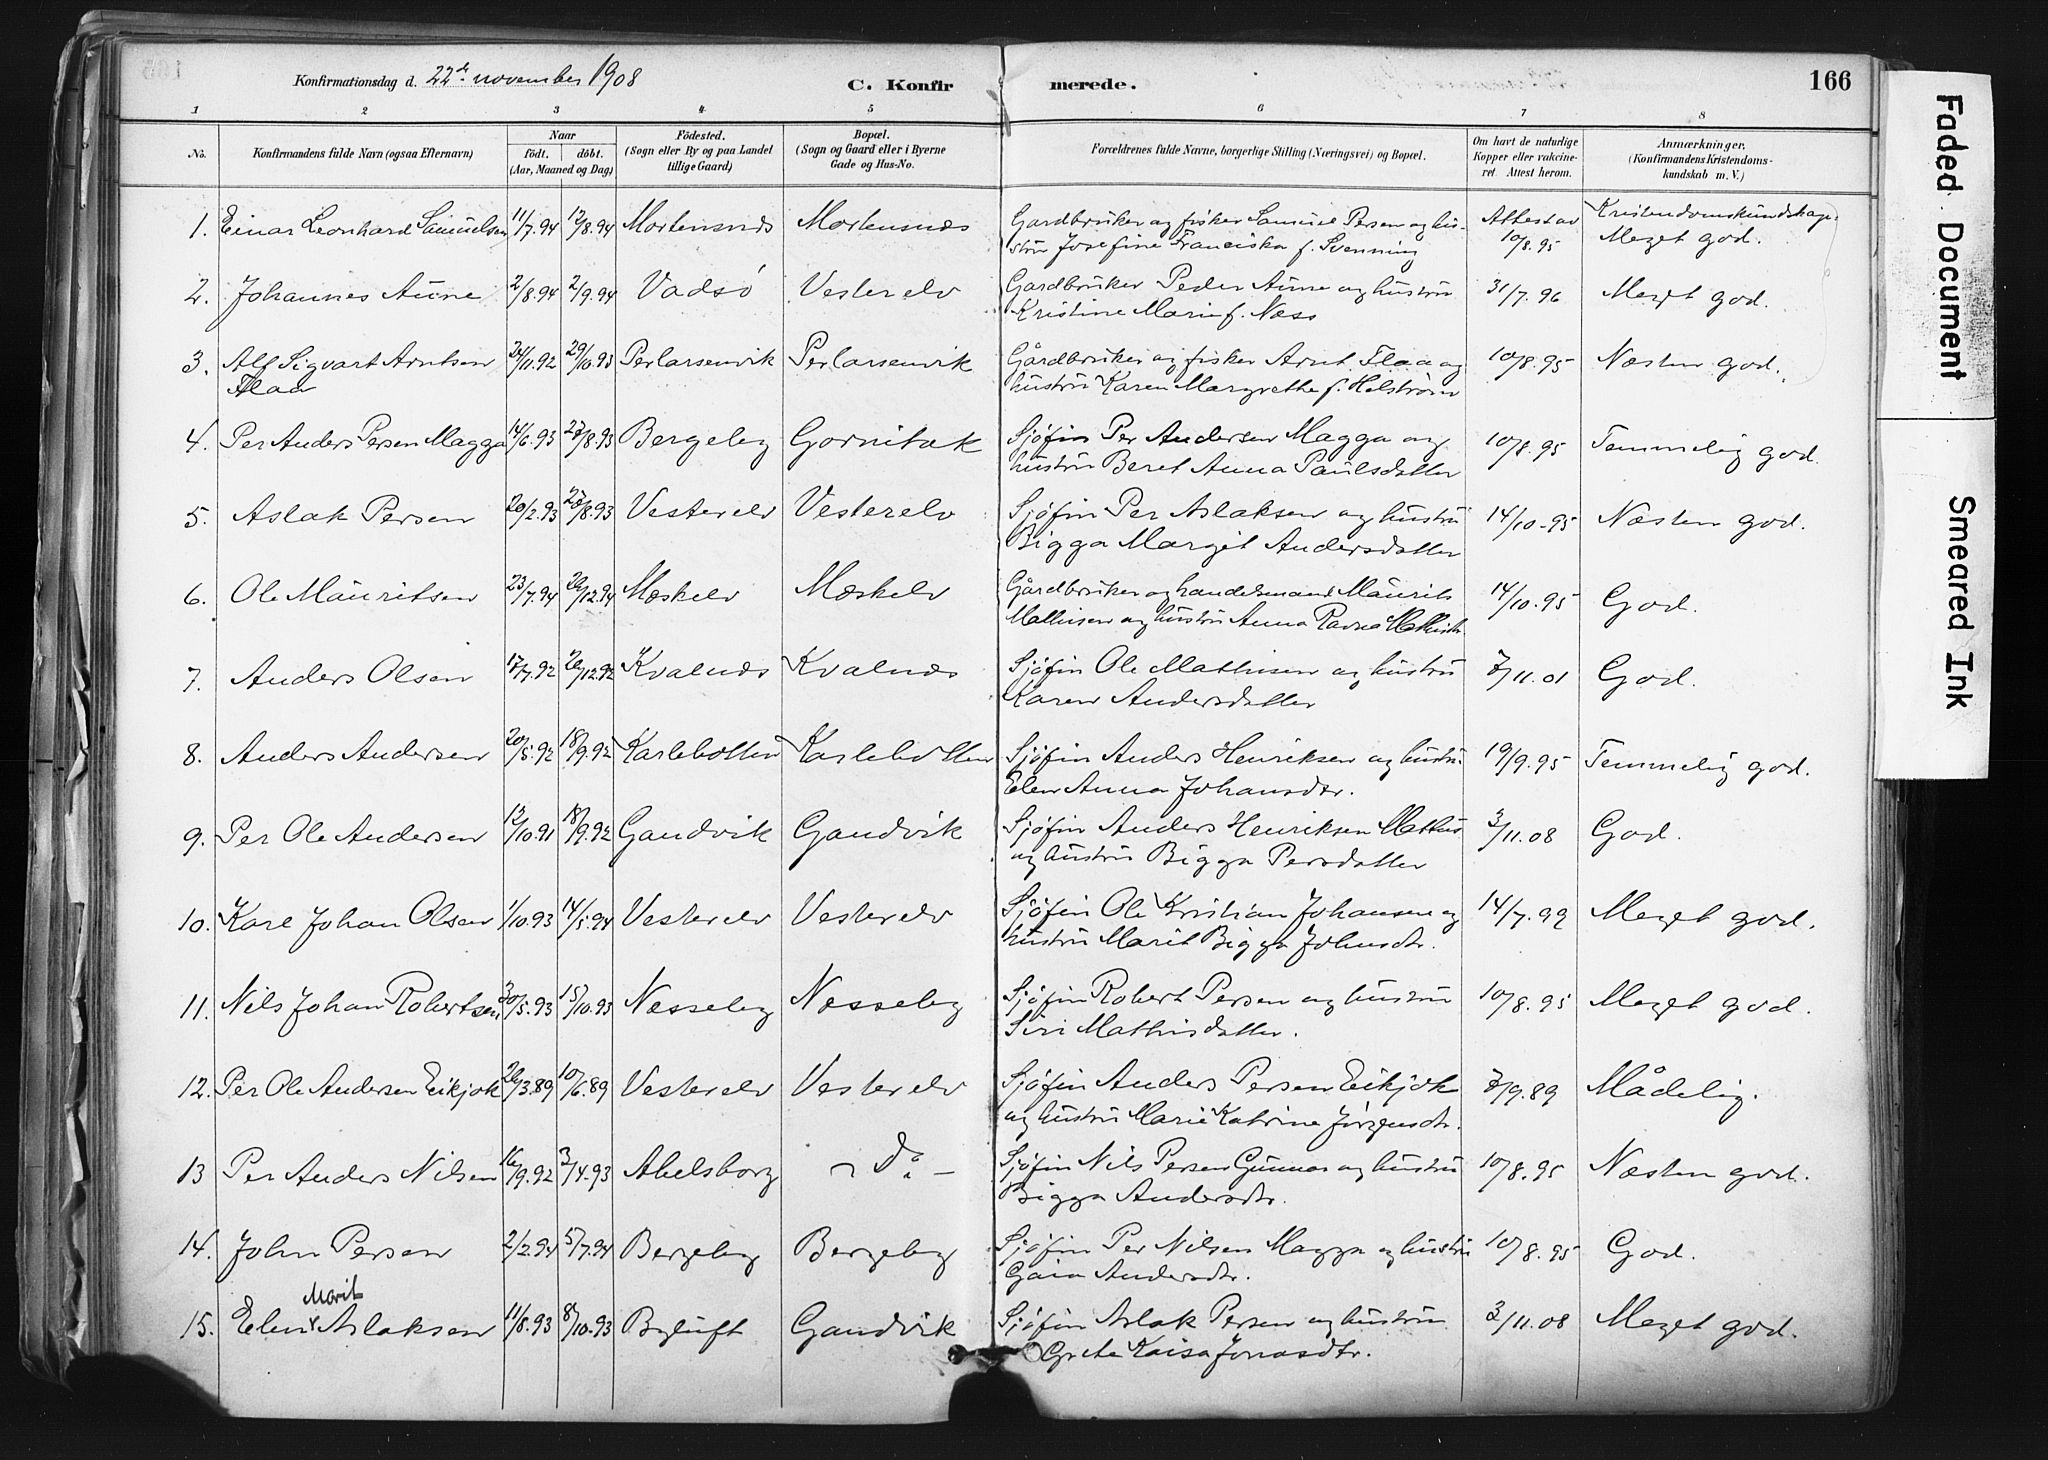 Konfirmationsdag d. 22de november 1908
C. Konfirmerede.
166
1 2 3 4 5 6 7 8
No.
Konfirmandens fulde Navn (ogsaa Efternavn)
Naar
födt. döbt.
(Aar, Maaned og Dag)
Födested.
(Sogn eller By og paa Landet
tillige Gaard)
Bopæl.
(Sogn og Gaard eller i Byerne
Gade og Hus-No.
Forældrenes fulde Navne, borgerlige Stilling (Næringsvei) og Bopæl.
Om havt de naturlige
Kopper eller vakcine-
ret. Attest herom.
Anmærkninger.
(Konfirmandens Kristendoms-
kundskab m. V.)
1. Einar Leonhard Samuelsen 11/7.94 12/8.94 Mortensnæs Mortensnæs Gardbruker og fisker Samuel Persen og hu- Attest av 10/8.95 Kristendomskundskap.
stru Josefine Franciska f. Svenning Meget god.
2. Johannes Aune 2/8.94 2/9.94 Vadsø Vesterelv Gardbruker Peder Aune og hustru 31/7.96 Meget god.
Kristine Marie f. Næss
3. Alf Sigvart Arntsen 24/11.92 29/10.93 Perlarsenvik Perlarsenvik Gårdbruker og fisker Arnt Flaa og 10/8.95 Næsten god.
Flaa hustru Karen Margrethe f. Helstrøm
4. Per Anders Persen Magga 14/6.93 27/8.93 Bergeby Gornitak Sjøfin Per Andersen Magga og 10/8.95 Temmelig god.
hustru Beret Anna Paulsdatter
5. Aslak Persen 20/2.93 27/8.93 Vesterelv Vesterelv Sjøfin Per Aslaksen og hustru 14/10.95 Næsten god.
Bigga Margit Andersdatter
6. Ole Mauritsen 23/7.94 26/12.94 Mæskelv Mæskelv Gårdbruker og handelsmand Maurits 14/10.95 God.
Mathisen og hustru Anna Ravna
7. Anders Olsen 17/7.92 26/12.92 Kvalnæs Kvalnæs Sjøfin Ole Mathisen og hustru 7/11.01 God.
Karen Andersdatter
8. Anders Andersen 20/5.92 18/9.92 Karlebotten Karlebotten Sjøfin Anders Henriksen og hustru 19/9.95 Temmelig god.
Elen Anna Johansdtr.
9. Per Ole Andersen 12/10.91 18/9.92 Gandvik Gandvik Sjøfin Anders Henriksen Mathis 3/11.08 God.
og hustru Bigga Persdatter
10. Karl Johan Olsen 1/10.93 14/5.94 Vesterelv Vesterelv Sjøfin Ole Kristian Johansen og 14/7.99 Meget god.
hustru Marit Bigga Johnsdtr.
11. Nils Johan Robertsen 30/5.93 15/10.93 Næsseby Næsseby Sjøfin Robert Persen og hustru 10/8.95 Meget god.
Siri Mathisdatter.
12. Per Ole Andersen Eikjok 26/3.89 10/6.89 Vesterelv Vesterelv Sjøfin Anders Persen Eikjok 7/9.89 Mådelig.
og hustru Marie Katrine Jörgensdtr.
13 Per Anders Nilsen 16/9.92 3/4.93 Abelsborg – Do – Sjøfin Nils Persen Gunnar og hustru 10/8.95 Næsten god.
Bigga Andersdtr.
14. John Persen 2/2.94 5/7.94 Bergeby Bergeby Sjøfin Per Nilsen Magga og hustru 10/8.95 God.
Gaia Andersdtr.
Marit
15. Elen Aslaksen 11/8.93 8/10.93 Byluft Gandvik Sjøfin Aslak Persen og hustru 3/11.08 Meget god.
Grete Kaisa Jonasdtr.
Faded Document
Smeared Ink